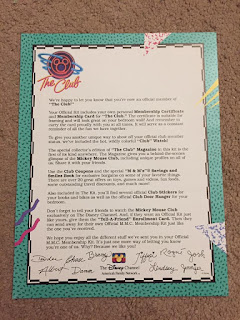 The Club
We're happy to let you know that you're now an official member of
"The Club!"
Your Official Kit includes your own personal Membership Certificate
and Membership Card to "The Club." The certificate is suitable for
framing and will look great on your bedroom wall! And remember to
carry the card proudly with you at all times. It will serve as a constant
reminder of all the fun we have together.
To give you another unique way to show off your official club member
status, we've included the hot, wildly colorful "Club" Watch!
The special collector's edition of "The Club" Magazine is also
one of its kind anywhere. The Magazine gives you a behind-the-scenes
glimpse of the Mickey Mouse Club, including sample profiles on all of
us. Share it with your friends.
Use the Club Coupons and the special "M & M's"® Savings and
Smiles Book for exclusive bargains on some of your favorite things.
There are over 20 great offers on toys, games and videos, not to mention
some outstanding travel discounts, and much more!
Also included in The Kit, you'll find several official Club Stickers for
your books and bikes as well as the official Club Door Hanger for your
bedroom.
Don't forget to tell your friends to watch the Mickey Mouse Club
exclusively on The Disney Channel. And, if they want an Official Kit just
like yours, give them the "Tell-A-Friend" Enrollment Card. Then they
can send away for their own Official M.M.C. Membership Kit just like
the one you've received.
We hope you enjoy all the different stuff we've sent you in your Official
M.M.C. Membership Kit. It's just one more way of letting you know
you're one of us. Why? Because we like you!
Chase
Roque
Josh
Albert
Deena
The Disney Channel
Lindsey
Jennifer